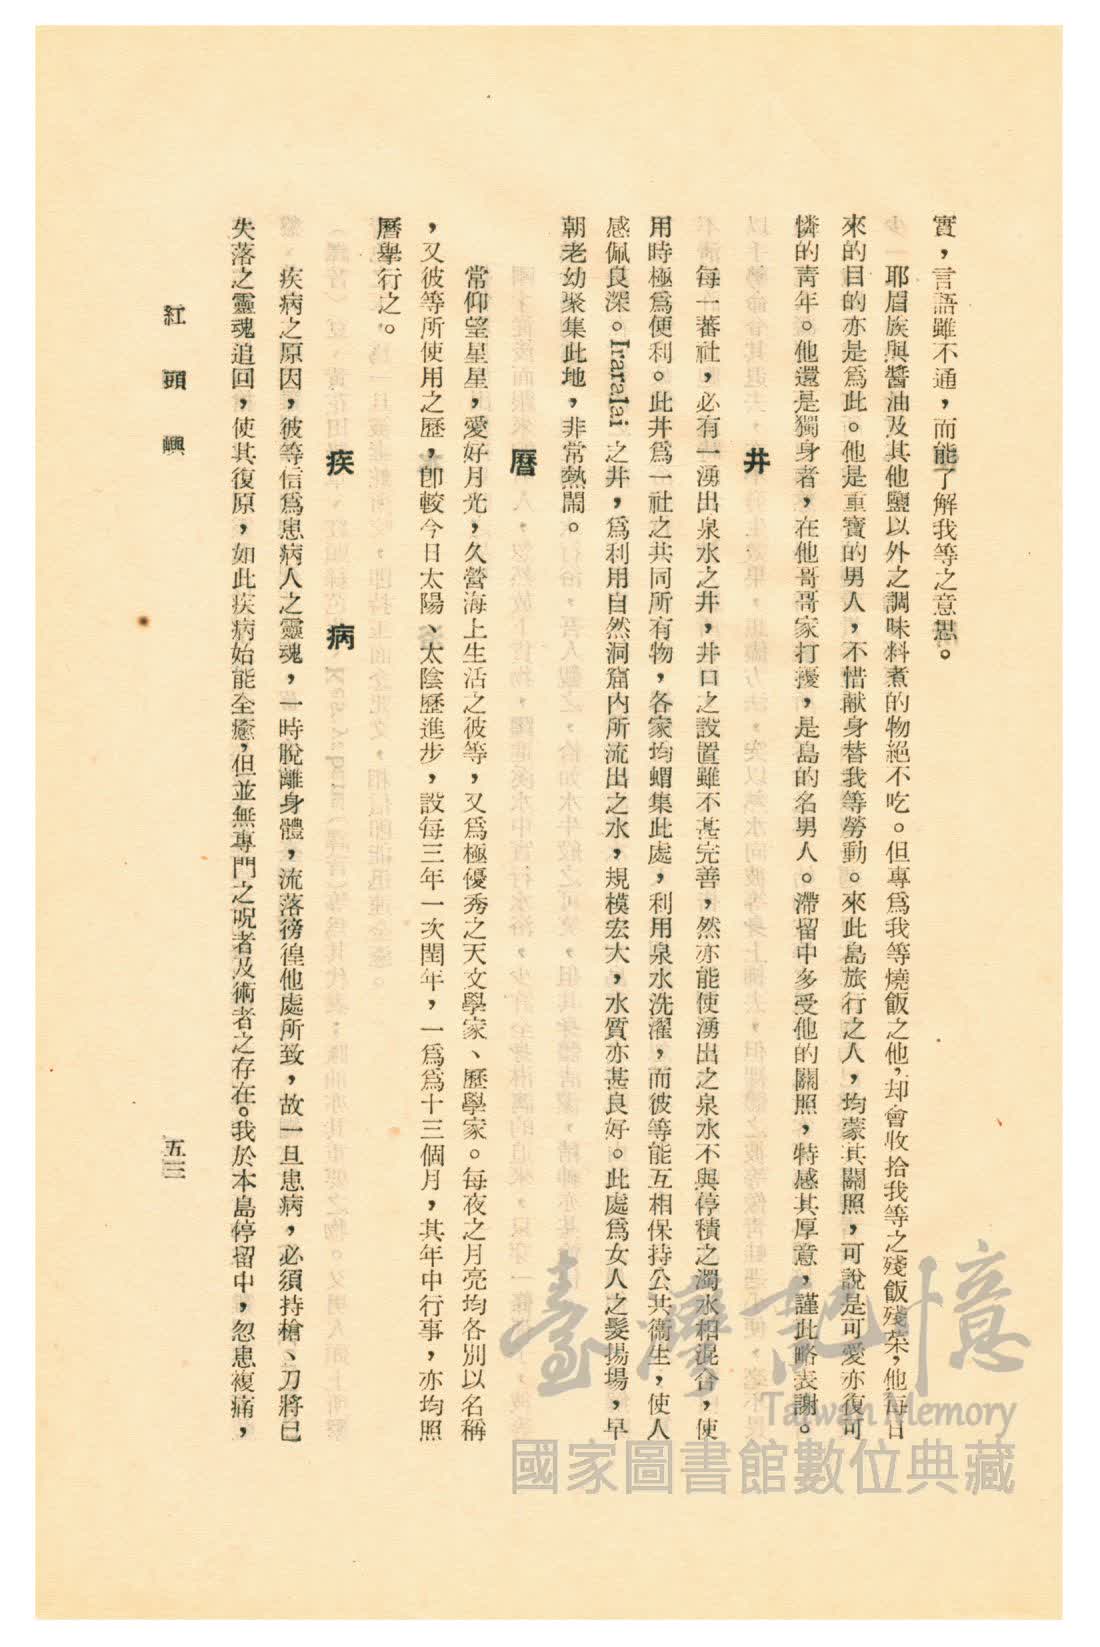 實，言語雖不通，而能了解我等之意思。
耶眉族與醬油及其他鹽以外之調味料煮的物絕不吃。但專爲我等燒飯之他，却會收拾我等之殘飯殘菜，他每日
來的目的亦是爲此。他是重寶的男人，不惜献身替我等勞動。來此島旅行之人，均蒙其關照，可說是可愛亦復可
憐的靑年。他還是獨身者，在他哥哥家打擾，是島的名男人。滯留中多受他的關照，特感其厚意，謹此略表謝。
井
每一蕃社，必有一湧出泉水之井，井口之設置雖不甚完善，然亦能使湧出之泉水不與停積之濁水相混合，使
用時極爲便利。此井爲一社之共同所有物，各家均蝟集此處，利用泉水洗濯，而彼等能互相保持公共衞生，使人
感佩良深。Iraralai 之井，爲利用自然洞窟內所流出之水，規模宏大，水質亦甚良好。此處爲女人之髮揚場，早
朝老幼聚集此地，非常熱鬧。
曆
常仰望星星，愛好月光，久營海上生活之彼等，又爲極優秀之天文學家、歷學家。每夜之月亮均各別以名稱
，又彼等所使用之歷，卽較今日太陽、太陰歷進步，設每三年一次閏年，一爲爲十三個月，其年中行事，亦均照
曆舉行之。
疾病
疾病之原因，彼等信爲患病人之靈魂，一時脫離身體，流落徬徨他處所致，故一旦患病，必須持槍、刀將已
失落之靈魂追回，使其復原，如此疾病始能全癒，但並無專門之呪者及術者之存在。我於本島停留中，忽患複痛，
紅頭嶼
五三
臺灣記憶
Taiwan Memory
國家圖書館數位典藏